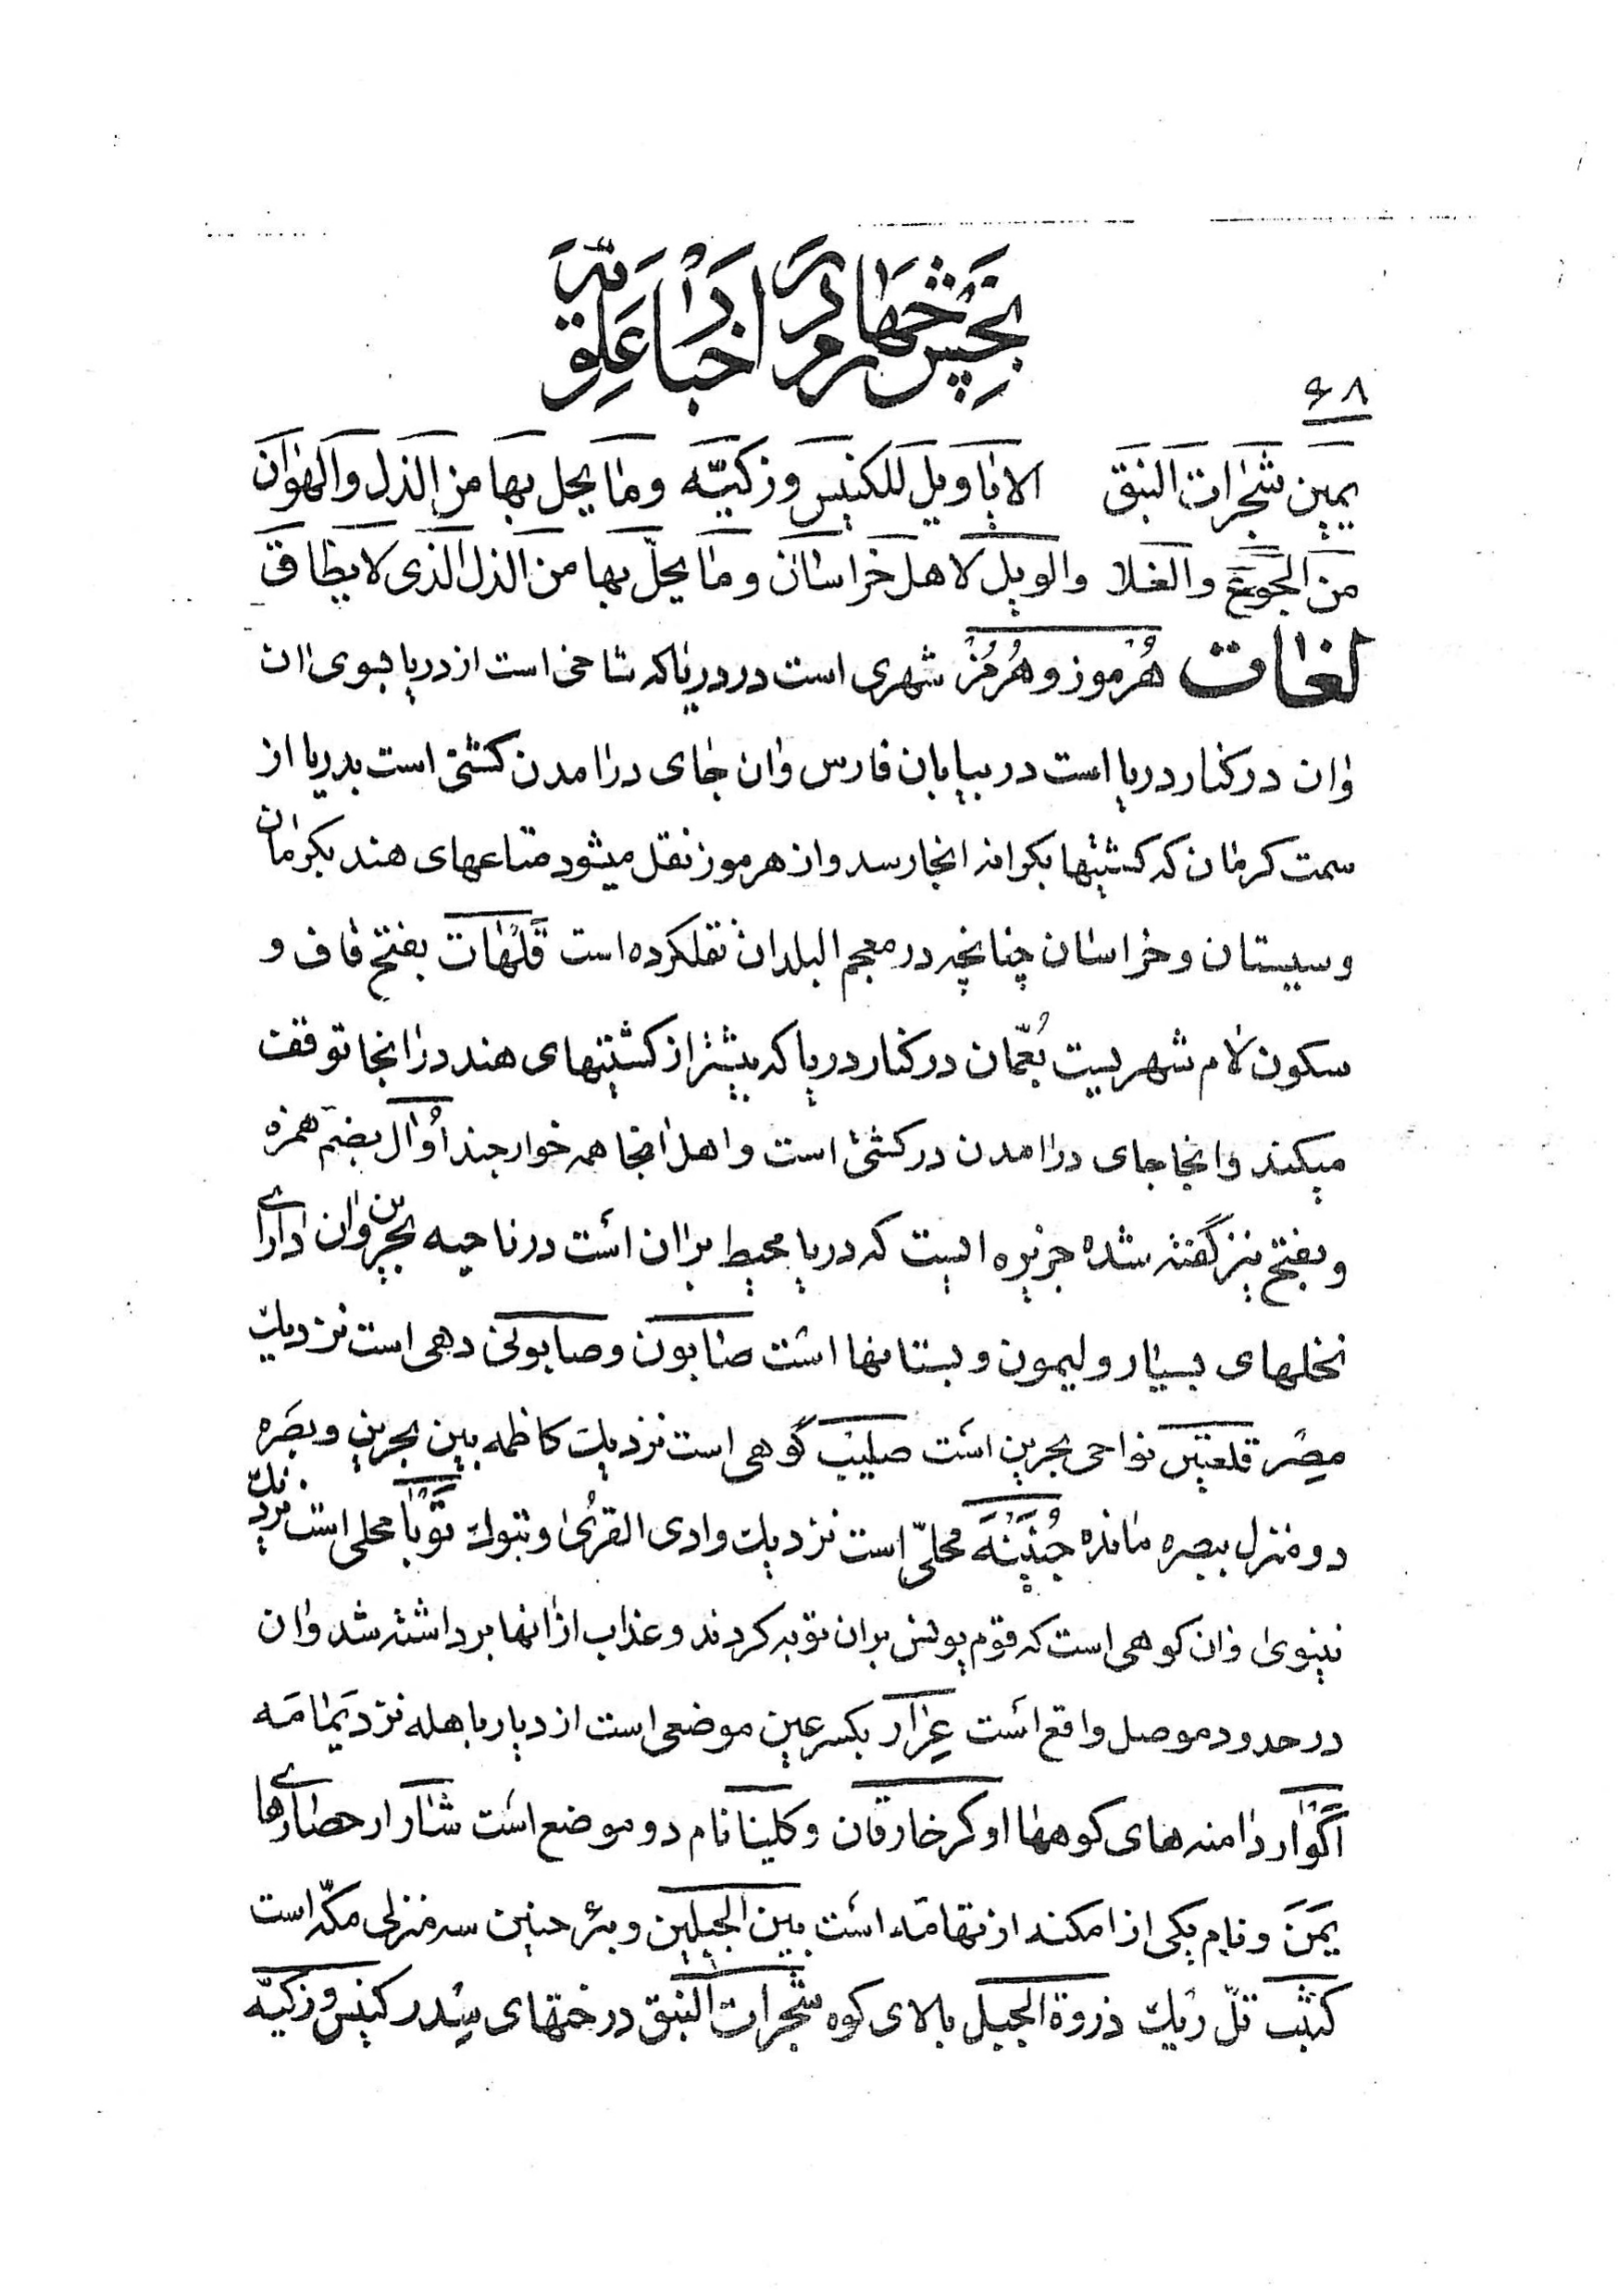 بخش چهارم در اخبار علویه
۶۸
یمین شجرات النبق الا یا ویل للکنیس وزکیّه وما یحل بها من الذل والهوان
من الجوع والغلا والویل لاهل خراسان وما یحلّ بها من الذل الذی لا یطاق
لغات هُرموز و هُرمُز شهری است در دریا که شاخی است از دریا بسوی ان
وان در کنار دریا است در بیابان فارس وان جای درامدن کشتی است بدریا از
سمت کرمان که کشتیها بکرانه انجا رسد و از هرموز نقل میشود متاعهای هند بکرمان
و سیستان و خراسان چنانچه در معجم البلدان نقلکرده است قَلهات بفتح قاف و
سکون لام شهریست بُعمّان در کنار دریا که بیشتر از کشتیهای هند در انجا توقف
میکند وانجا جای درامدن در کشتی است و اهل انجا همه خوارجند اُوال بضم همزه
و بفتح نیز گفته شده جزیره ایست که دریا محیط بران است در ناحیه بحرین وان دارای
نخلهای بسیار و لیمون و بستانها است صابون و صابونی دهی است نزدیک
مصر قلعتین نواحی بحرین است صلیب کوهی است نزدیک کاظمه بین بحرین و بصره
دو منزل ببصره مانده جُنَینَه محلّی است نزدیک وادی القری و تبوک تَوبا محلی است نزدیک
نینوی وان کوهی است که قوم یونس بران توبه کردند و عذاب از انها برداشته شد وان
در حدود موصل واقع است عِزار بکسر عین موضعی است از دیار باهله نزد یمامه
اکوار دامنه های کوهها اوکر خارقان و کلینا نام دو موضع است شار از حصارهای
یَمَنَ و نام یکی از امکنه از تهامه است بین الجبلین و بئر حنین سه منزلی مکّه است
کثیب تلّ ریک ذروة الجبل بالای کوه شجرات النبق درختهای سِدر کنیس و زکیّه